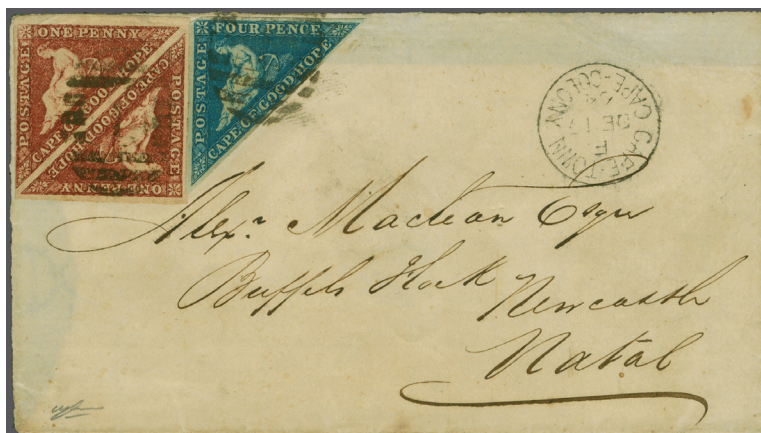 ONE PENNY
POSTAGE
CAPE OF GOOD HOPE
ONE PENNY
POSTAGE
CAPE OF GOOD HOPE
FOUR PENCE
POSTAGE
CAPE OF GOOD HOPE
CAPE-TOWN
CAPE-COLONY
F
DE 17
Alexr. Maclean Esqre
Buffels Hoek
Newcastle
Natal